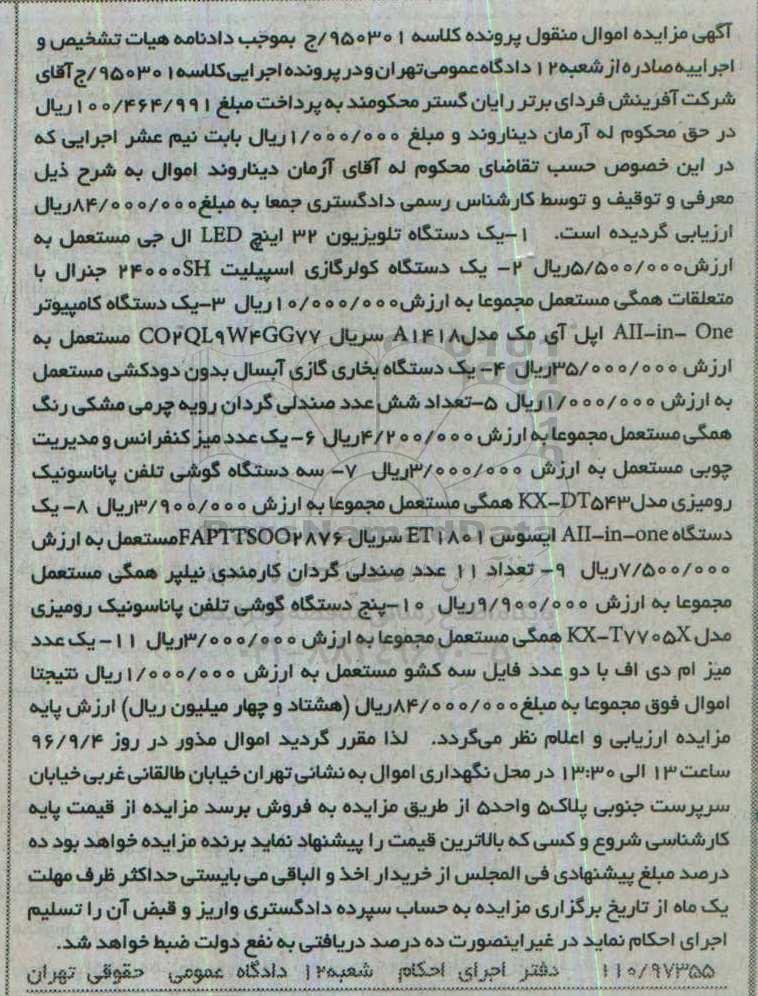 آگهی مزایده اموال منقول پرونده کلاسه ۹۵۰۳۰۱/ج بموجب دادنامه هیات تشخیص و
اجراییه صادره از شعبه ۱۲ دادگاه عمومی تهران و در پرونده اجرایی کلاسه ۹۵۰۳۰۱/ج آقای
شرکت آفرینش فردای برتر رایان گستر محکومند به پرداخت مبلغ ۱۰۰/۴۶۴/۹۹۱ ریال
در حق محکوم له آرمان دیناروند و مبلغ ۱/۰۰۰/۰۰۰ ریال بابت نیم عشر اجرایی که
در این خصوص حسب تقاضای محکوم له آقای آزمان دیناروند اموال به شرح ذیل
معرفی و توقیف و توسط کارشناس رسمی دادگستری جمعا به مبلغ ۸۴/۰۰۰/۰۰۰ ریال
ارزیابی گردیده است. ۱-یک دستگاه تلویزیون ۳۲ اینچ LED ال جی مستعمل به
ارزش ۵/۵۰۰/۰۰۰ ریال ۲- یک دستگاه کولرگازی اسپیلیت ۲۴۰۰۰SH جنرال با
متعلقات همگی مستعمل مجموعا به ارزش ۱۰/۰۰۰/۰۰۰ ریال ۳-یک دستگاه کامپیوتر
All-in- One اپل آی مک مدل A۱۴۱۸ سریال CO۲QL۹W۴GG۷۷ مستعمل به
ارزش ۳۵/۰۰۰/۰۰۰ ریال ۴- یک دستگاه بخاری گازی آبسال بدون دودکشی مستعمل
به ارزش ۱/۰۰۰/۰۰۰ ریال ۵-تعداد شش عدد صندلی گردان رویه چرمی مشکی رنگ
همگی مستعمل مجموعا به ارزش ۴/۲۰۰/۰۰۰ ریال ۶- یک عدد میز کنفرانس و مدیریت
چوبی مستعمل به ارزش ۳/۰۰۰/۰۰۰ ریال ۷- سه دستگاه گوشی تلفن پاناسونیک
رومیزی مدل KX-DT۵۴۳ همگی مستعمل مجموعا به ارزش ۳/۹۰۰/۰۰۰ ریال ۸- یک
دستگاه All-in-one ایسوس ET۱۸۰۱ سریال FAPTTSOO۲۸۷۶ مستعمل به ارزش
۷/۵۰۰/۰۰۰ ریال ۹- تعداد ۱۱ عدد صندلی گردان کارمندی نیلپر همگی مستعمل
مجموعا به ارزش ۹/۹۰۰/۰۰۰ ریال ۱۰-پنج دستگاه گوشی تلفن پاناسونیک رومیزی
مدل KX-T۷۷۰۵X همگی مستعمل مجموعا به ارزش ۳/۰۰۰/۰۰۰ ریال ۱۱- یک عدد
میز ام دی اف با دو عدد فایل سه کشو مستعمل به ارزش ۱/۰۰۰/۰۰۰ ریال نتیجتا
اموال فوق مجموعا به مبلغ ۸۴/۰۰۰/۰۰۰ ریال (هشتاد و چهار میلیون ریال) ارزش پایه
مزایده ارزیابی و اعلام نظر می‌گردد. لذا مقرر گردید اموال مذور در روز ۹۶/۹/۴
ساعت ۱۳ الی ۱۳:۳۰ در محل نگهداری اموال به نشانی تهران خیابان طالقانی غربی خیابان
سرپرست جنوبی پلاک ۵ واحد ۵ از طریق مزایده به فروش برسد مزایده از قیمت پایه
کارشناسی شروع و کسی که بالاترین قیمت را پیشنهاد نماید برنده مزایده خواهد بود ده
درصد مبلغ پیشنهادی فی المجلس از خریدار اخذ و الباقی می بایستی حداکثر ظرف مهلت
یک ماه از تاریخ برگزاری مزایده به حساب سپرده دادگستری واریز و قبض آن را تسلیم
اجرای احکام نماید در غیر اینصورت ده درصد دریافتی به نفع دولت ضبط خواهد شد.
۱۱۰/۹۷۳۵۵ دفتر اجرای احکام شعبه ۱۲ دادگاه عمومی حقوقی تهران